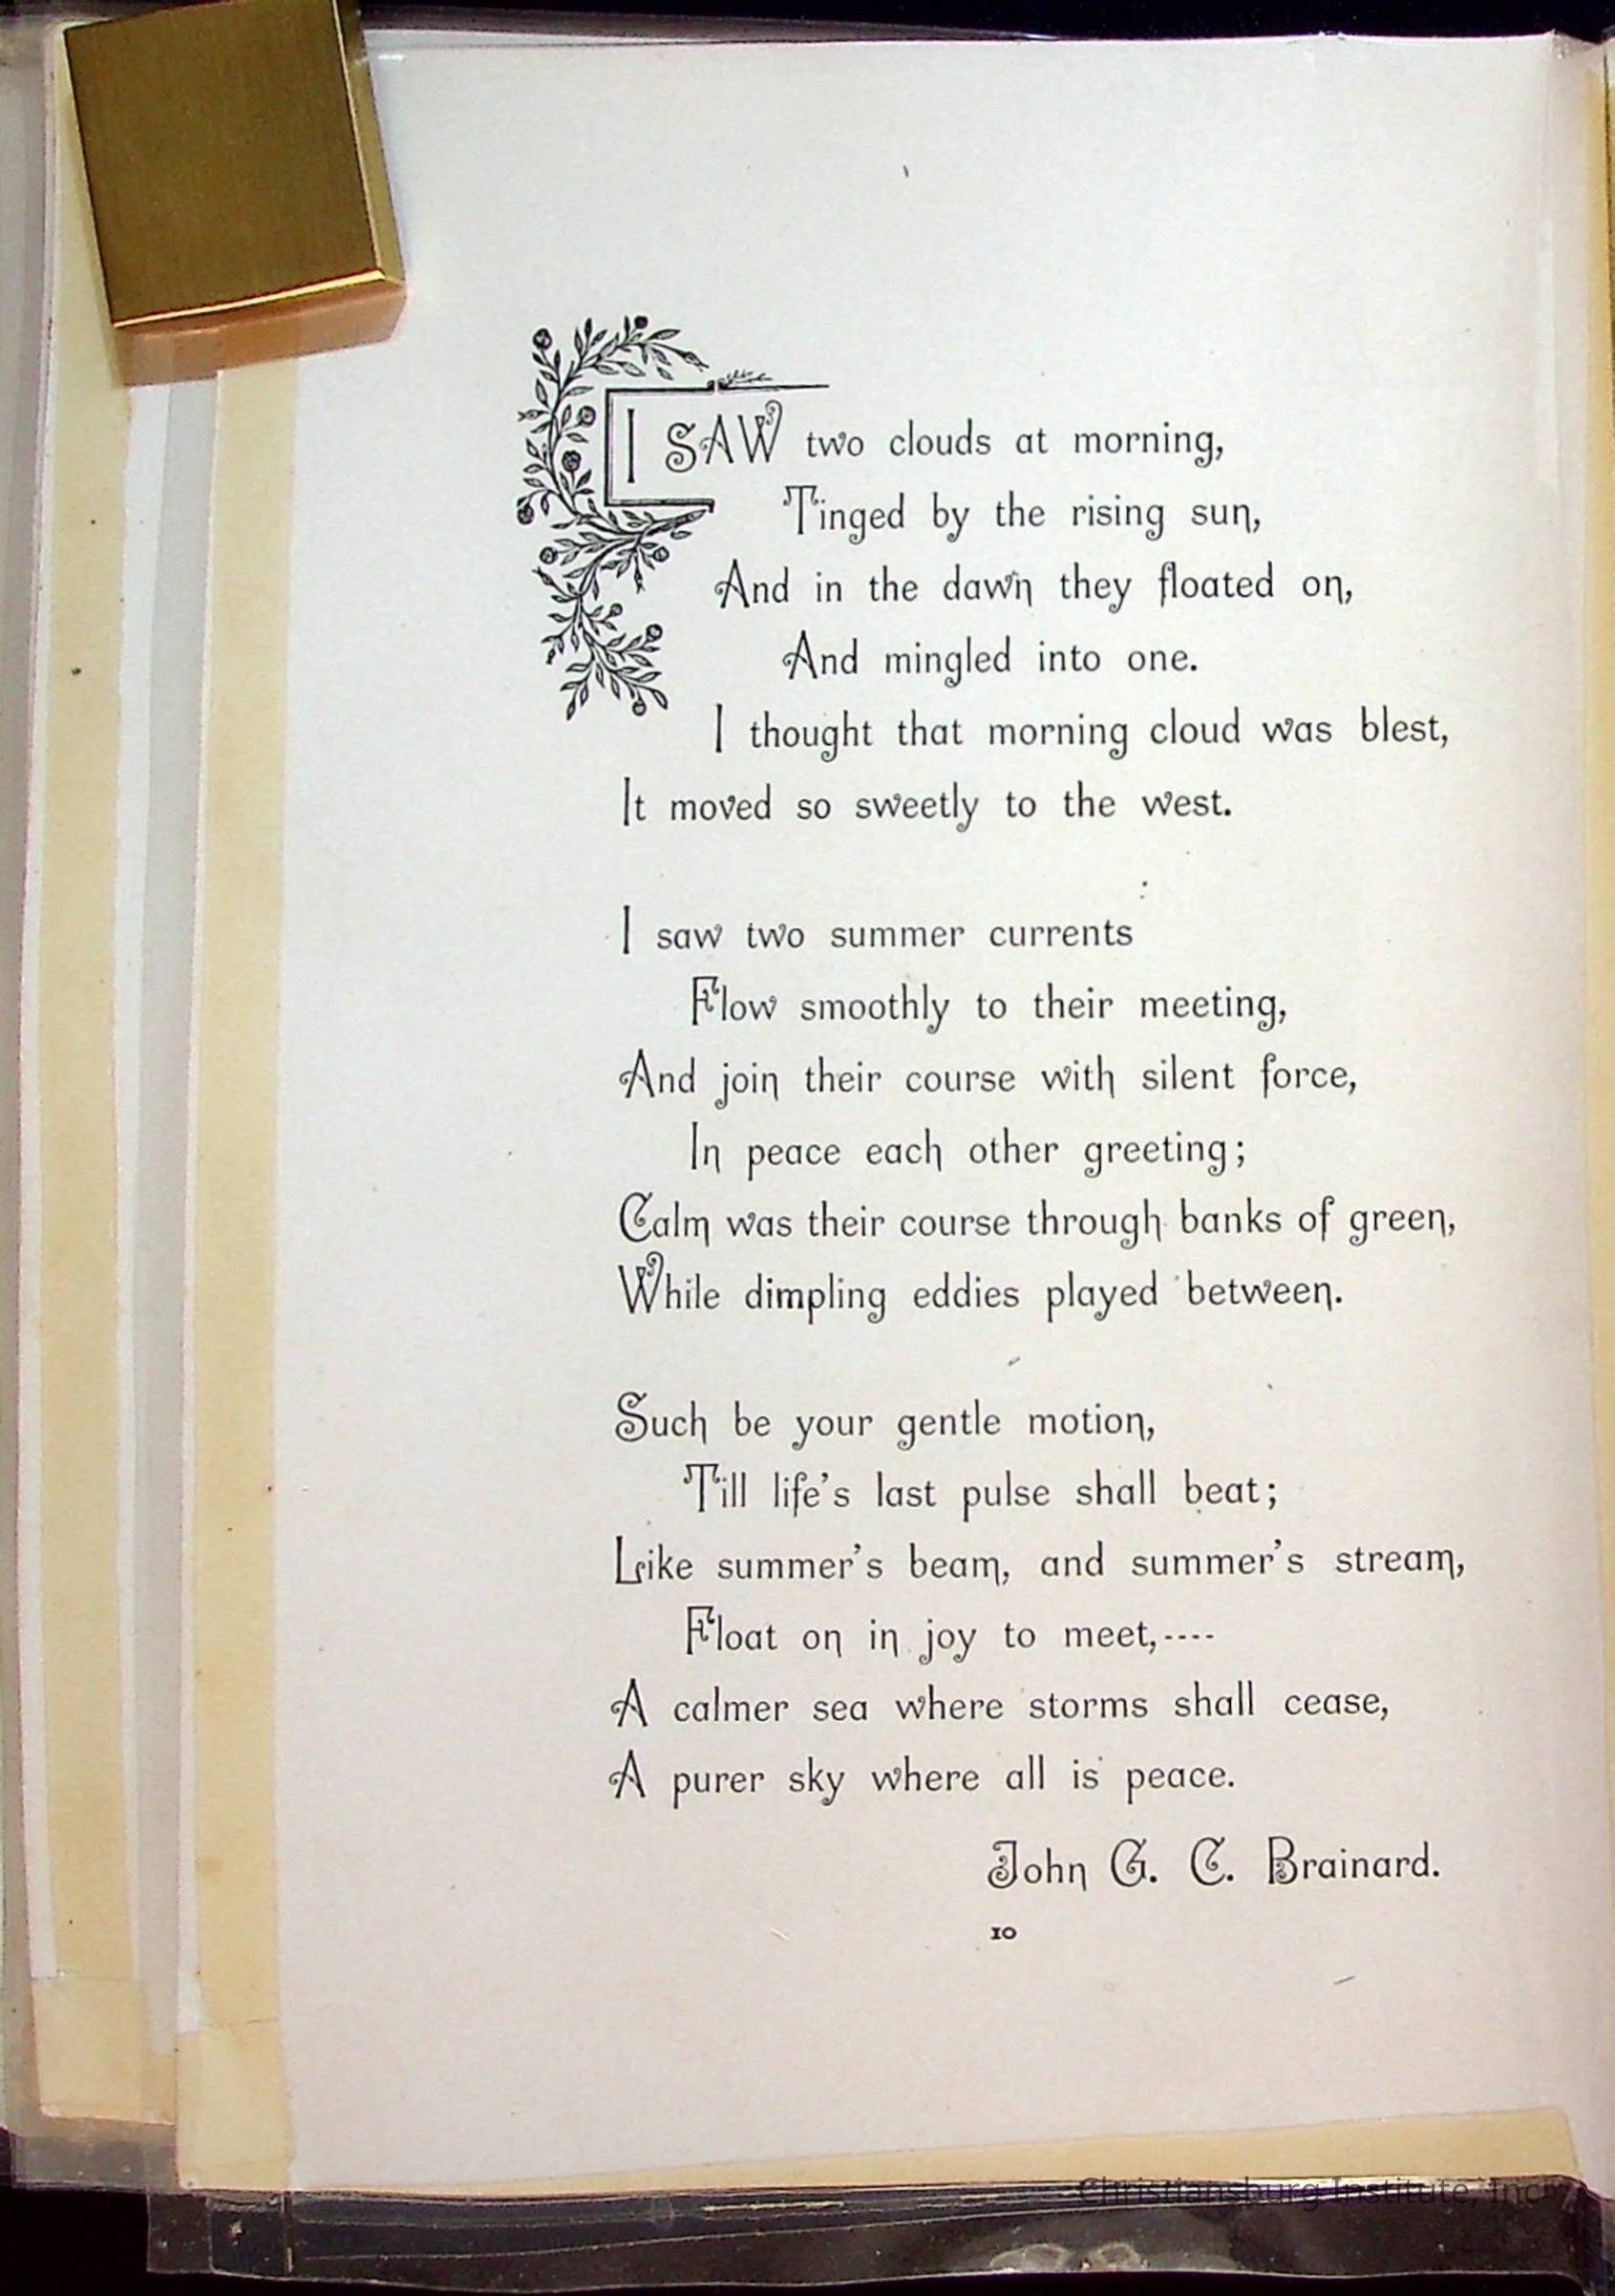 I SAW two clouds at morning,
Tinged by the rising sun,
And in the dawn they floated on,
And mingled into one.
I thought that morning cloud was blest,
It moved so sweetly to the west.
I saw two summer currents
Flow smoothly to their meeting,
And join their course with silent force,
In peace each other greeting;
Calm was their course through banks of green,
While dimpling eddies played between.
Such be your gentle motion,
Till life's last pulse shall beat;
Like summer's beam, and summer's stream,
Float on in joy to meet,----
A calmer sea where storms shall cease,
A purer sky where all is peace.
John G. C. Brainard.
10
Christiansburg Institute, Inc